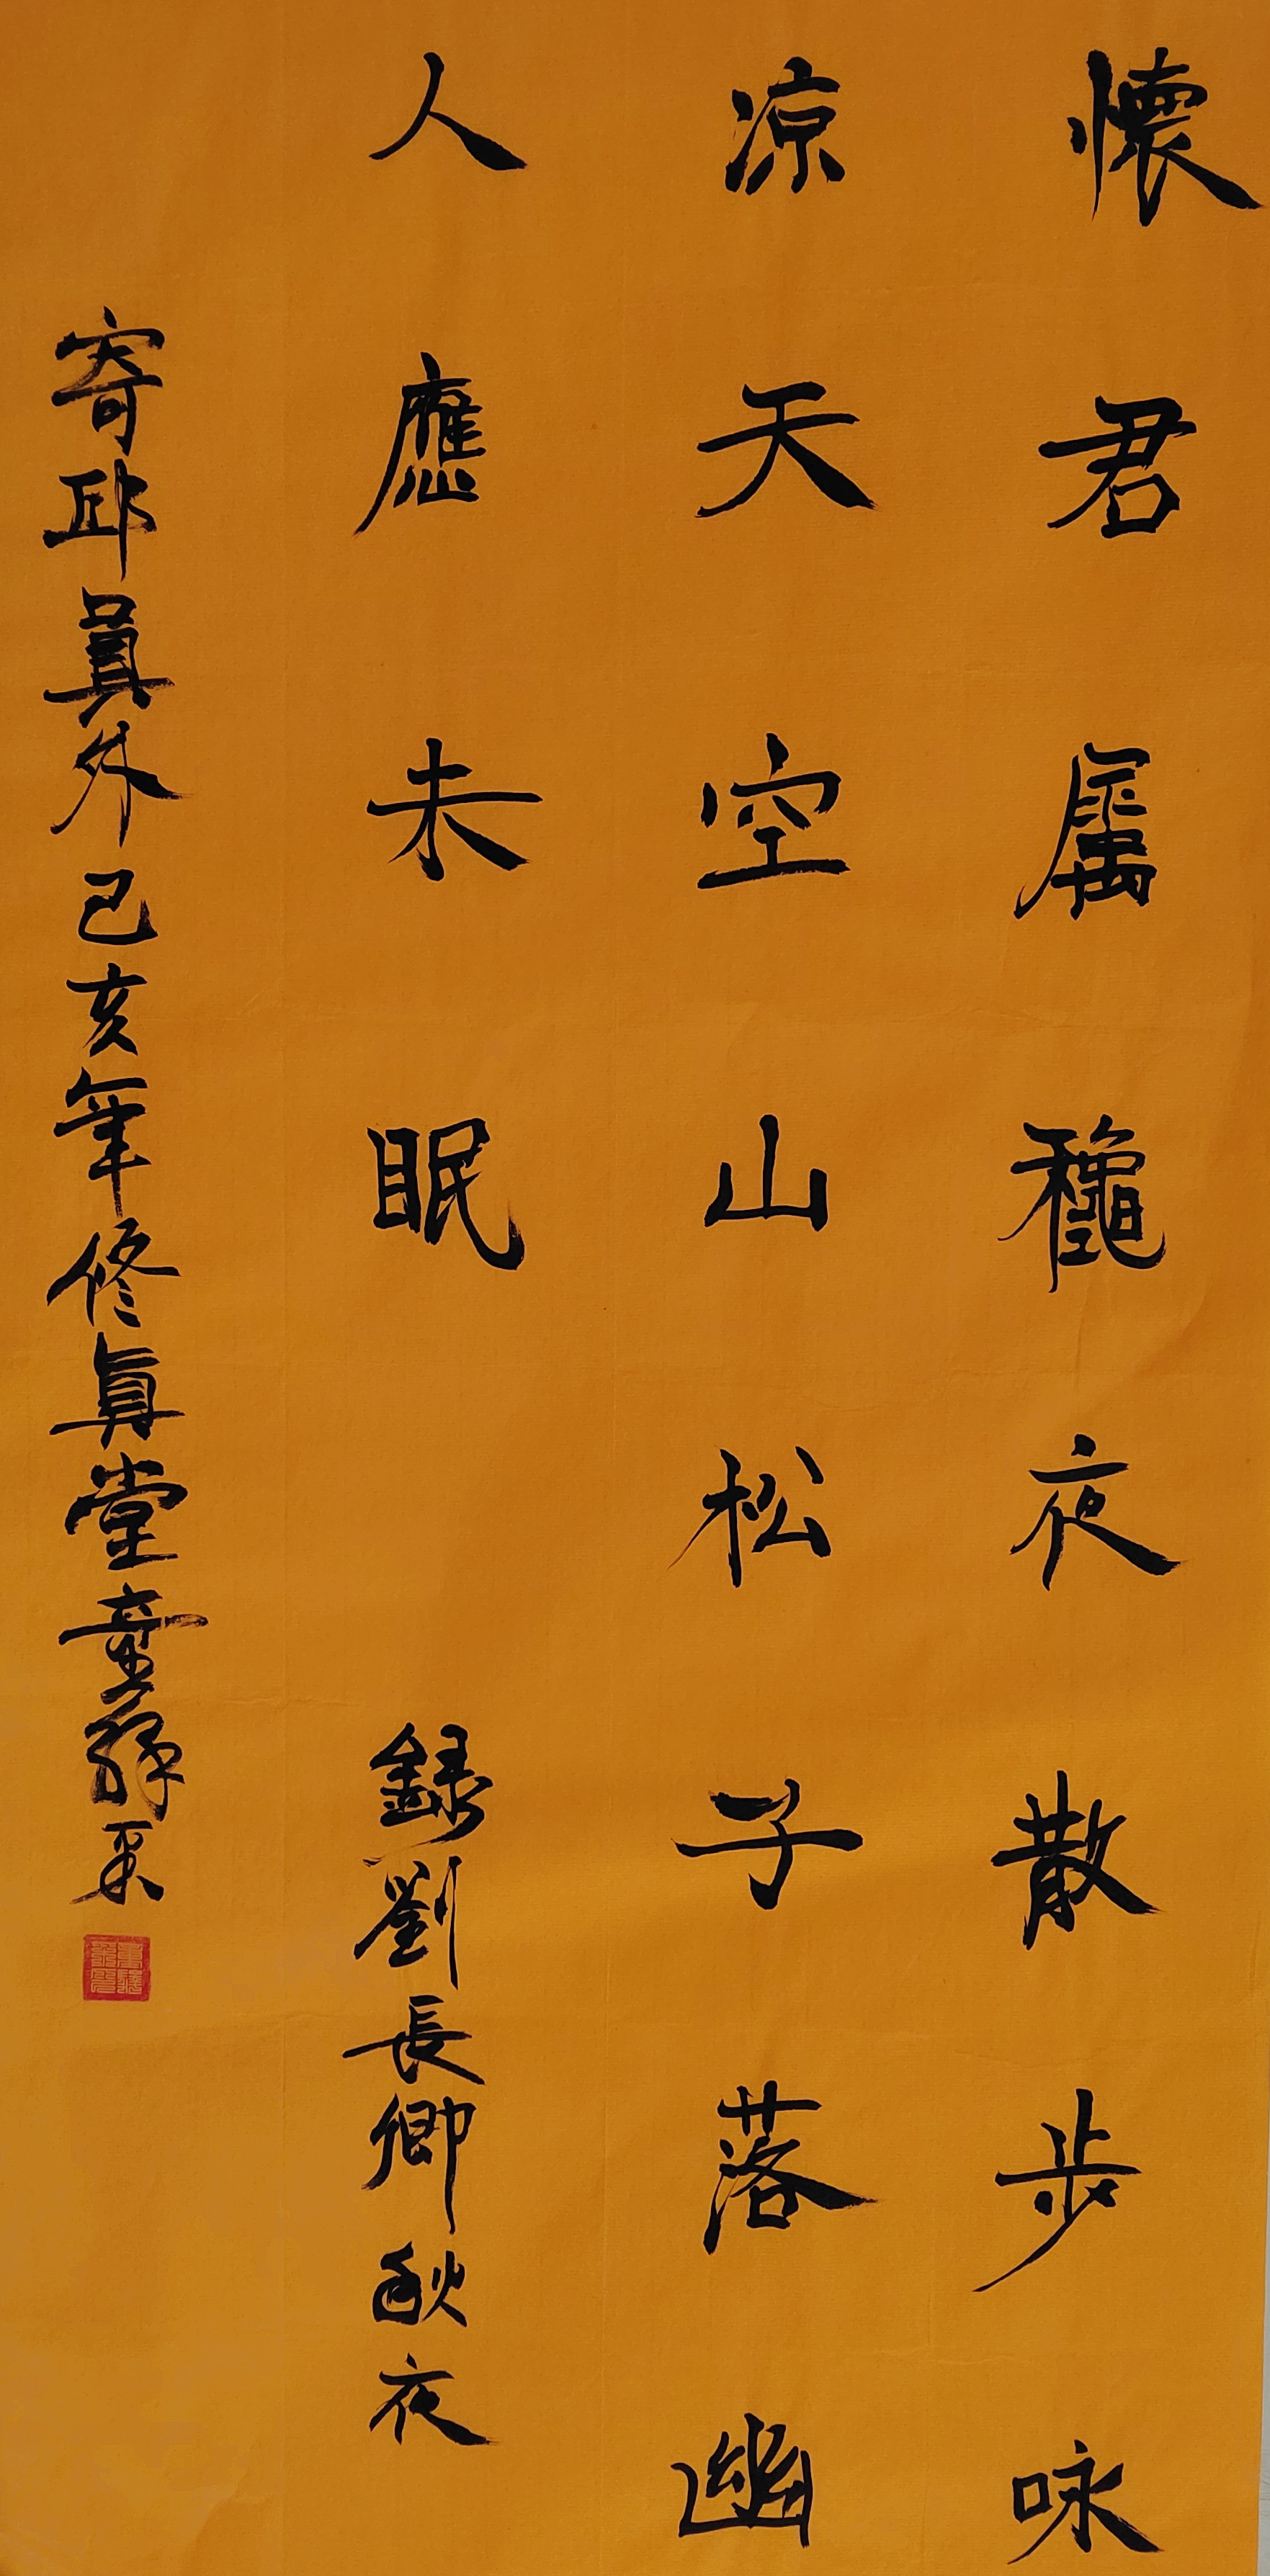 懷君屬龝夜散步咏
凉天空山松子落幽
人應未眠 錄劉長卿秋夜
寄邱員外己亥年修真堂童